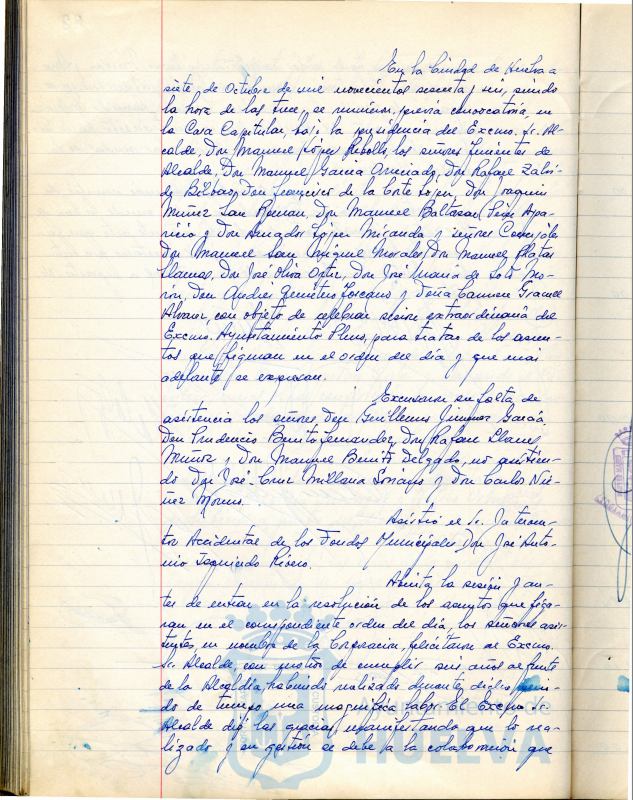 En la Ciudad de Huelva a
siete de Octubre de mil novecientos sesenta y seis, siendo
la hora de las trece, se reunieron, previa convocatoria, en
la Casa Capitular, bajo la presidencia del Excmo. Sr. Al-
calde, Don Manuel López Rebollo, los señores Tenientes de
Alcalde, Don Manuel García Don Rafael
de Bilbao, Don Francisco de la Corte López, Don Joaquín
Muñoz San Román, Don Manuel Baltasar Apa-
ricio y Don Amador López Miranda y señores Concejales
Don Manuel San Miguel Morales, Don Manuel
Llamas, Don José Oliva Ortiz, Don José María de Soto Mo-
rón, Don Andrés Quintero Toscano y Doña Carmen
Alvarez, con objeto de celebrar sesión extraordinaria del
Excmo. Ayuntamiento Pleno, para tratar de los asun-
tos que figuran en el orden del día y que más
adelante se expresan.
Excusaron su falta de
asistencia los señores Don Guillermo Jimenez García,
Don Prudencio Benito Fernandez, Don Rafael
Muñoz y Don Manuel Benito Delgado, no asistien-
do Don José Cruz Millana Soriano y Don Carlos Nú-
ñez Moreno.
Asistió el Sr. Interven-
tor Accidental de los Fondos Municipales, Don José Anto-
nio Izquierdo Rivero.
Abierta la sesión y an-
tes de entrar en la resolución de los asuntos que figu-
ran en el correspondiente orden del día, los señores asis-
tentes, en nombre de la Corporación, felicitaron al Excmo.
Sr. Alcalde, con motivo de cumplir seis años al frente
de la Alcaldía, habiendo realizado durante dicho perio-
do de tiempo una magnífica labor. El Excmo. Sr.
Alcalde dió las gracias, manifestando que lo rea-
lizado y su gestión se debe a la colaboración que
HUELVA